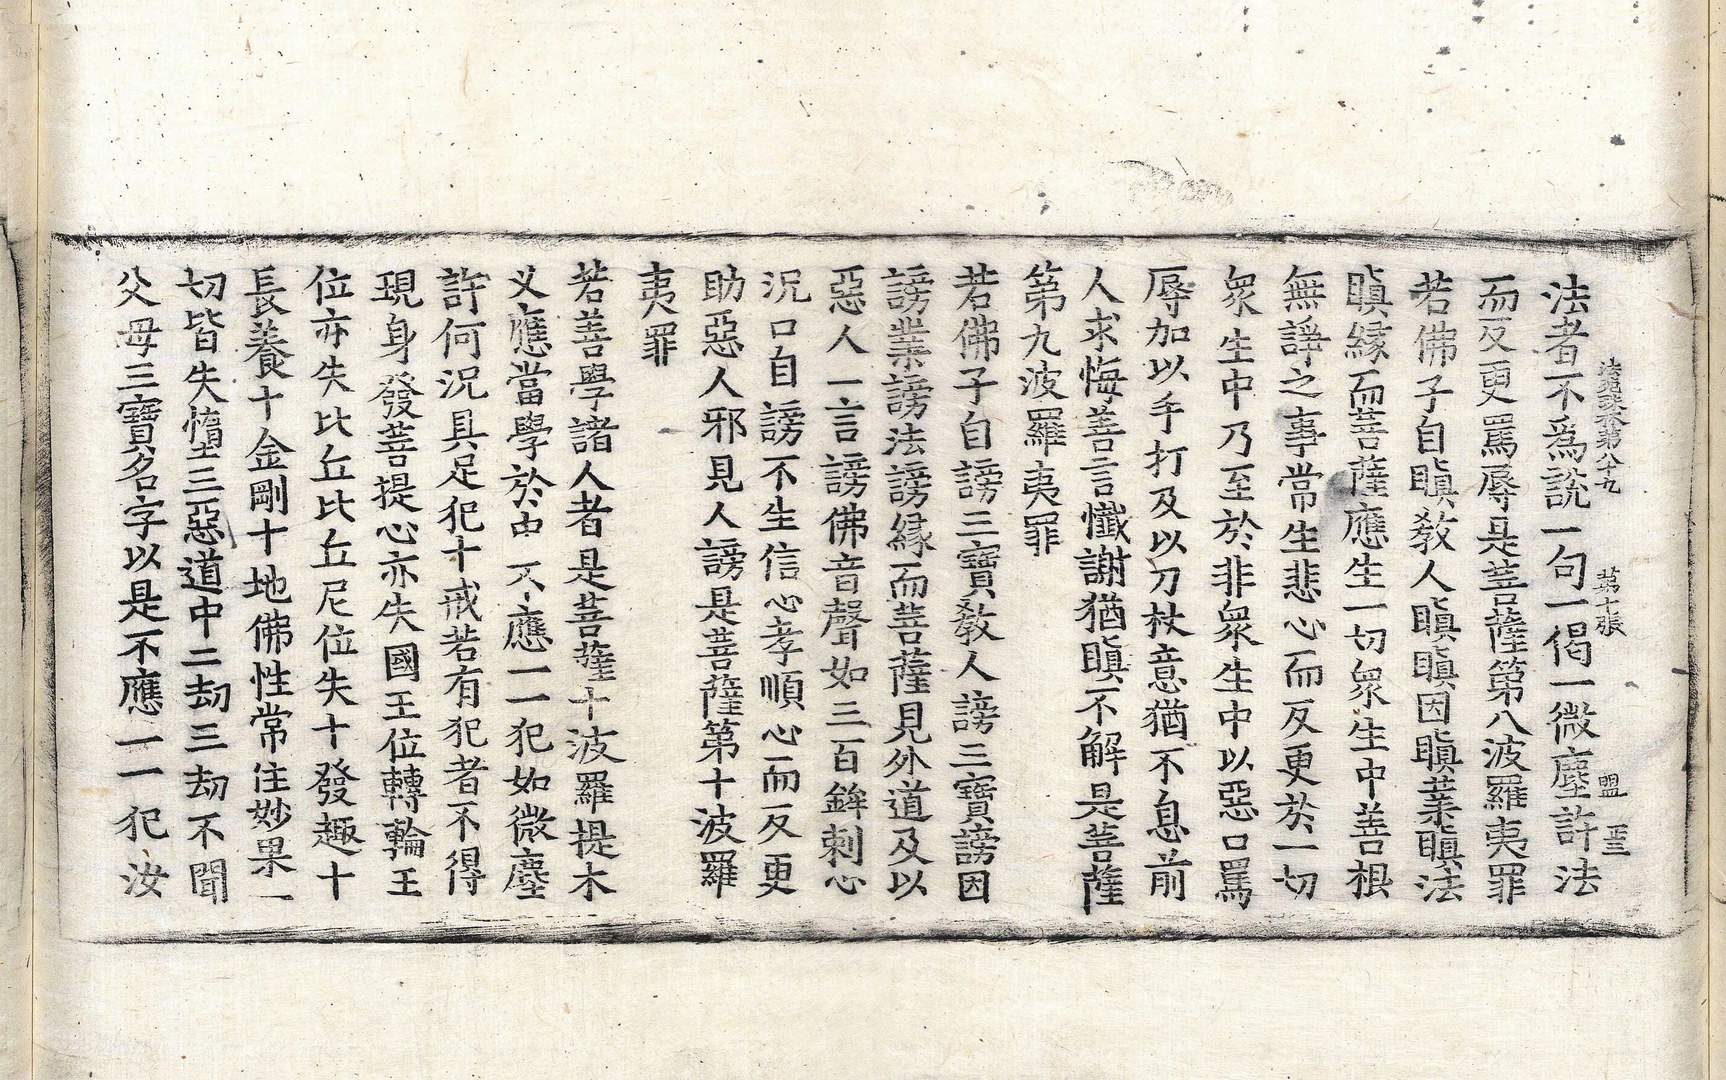 法苑珠林卷第八十九 第十張 盟 丕三
法者不爲說一句一偈一微塵許法
而反更罵辱是菩薩第八波羅夷罪
若佛子自瞋教人瞋瞋因瞋業瞋法
瞋緣而菩薩應生一切衆生中善根
無諍之事常生悲心而反更於一切
衆生中乃至於非衆生中以惡口罵
辱加以手打及以刀杖意猶不息前
人求悔善言懺謝猶瞋不解是菩薩
第九波羅夷罪
若佛子自謗三寶教人謗三寶謗因
謗業謗法謗緣而菩薩見外道及以
惡人一言謗佛音聲如三百鉾刺心
況口自謗不生信心孝順心而反更
助惡人邪見人謗是菩薩第十波羅
夷罪
若善學諸人者是菩薩十波羅提木
叉應當學於中不應一一犯如微塵
許何況具足犯十戒若有犯者不得
現身發菩提心亦失國王位轉輪王
位亦失比丘比丘尼位失十發趣十
長養十金剛十地佛性常住妙果一
切皆失墮三惡道中二劫三劫不聞
父母三寶名字以是不應一一犯汝